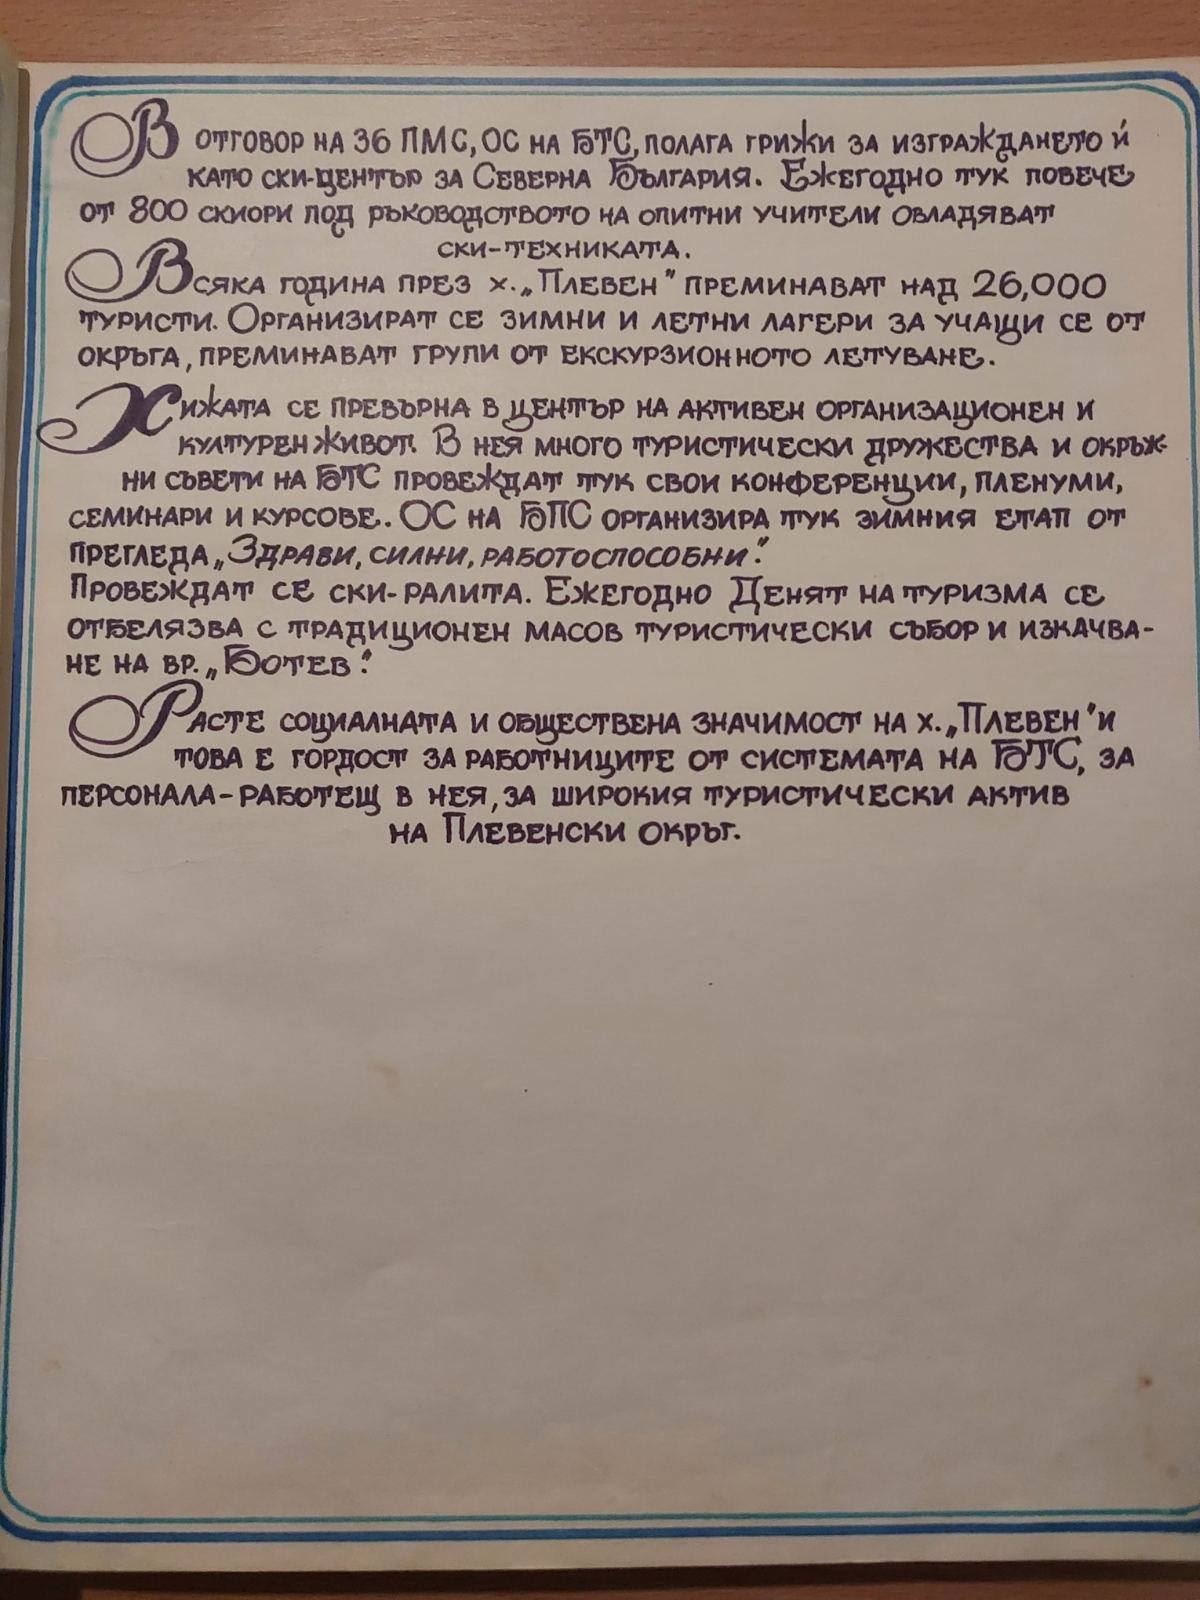 В отговор на 36 ПМС, ОС на БТС, полага грижи за изграждането ѝ
като ски-център за Северна България. Ежегодно тук повече
от 800 скиори под ръководството на опитни учители овладяват
ски-техниката.
Всяка година през х. „Плевен" преминават над 26,000
туристи. Организират се зимни и летни лагери за учащи се от
окръга, преминават групи от екскурзионното летуване.
Хижата се превърна в център на активен организационен и
културен живот. В нея много туристически дружества и окръж-
ни съвети на БТС провеждат тук свои конференции, пленуми,
семинари и курсове. ОС на БПС организира тук зимния етап от
прегледа „Здрави, силни, работоспособни".
Провеждат се ски-ралита. Ежегодно Денят на туризма се
отбелязва с традиционен масов туристически събор и изкачва-
не на вр. „Ботев".
Расте социалната и обществена значимост на х. „Плевен" и
това е гордост за работниците от системата на БТС, за
персонала-работещ в нея, за широкия туристически актив
на Плевенски окръг.